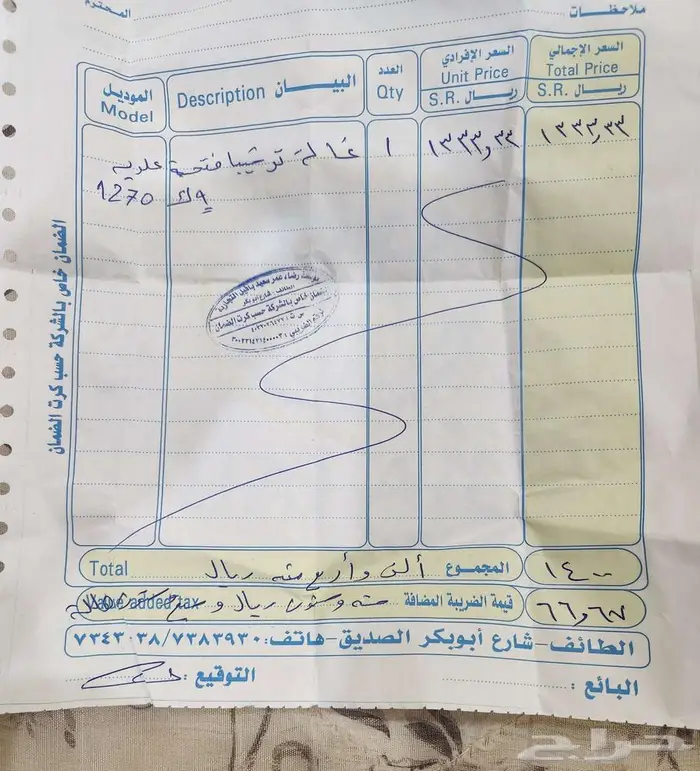 ملاحظات
المحترم
الموديل البيان العدد السعر الإفرادي السعر الإجمالي
Model Description Qty Unit Price Total Price
S.R. ريال S.R. ريال
غسالة توشيبا فتحة علوية ١ ١٣٣٣,٣٣ ١٣٣٣,٣٣
1270 ٩ك
الضمان خاص بالشركة حسب كرت الضمان
مؤسسة رضاء عمر سعيد التجارية
الضمان خاص بالشركة حسب كرت الضمان
Total المجموع ألف وأربع مئة ريال ١٤٠٠
Value added tax قيمة الضريبة المضافة ستة وستون ريال و ٦٦,٦٧
الطائف - شارع أبوبكر الصديق - هاتف: ٧٣٨٣٩٣٠ / ٧٣٤٣٠٣٨
البائع : التوقيع :
حراج